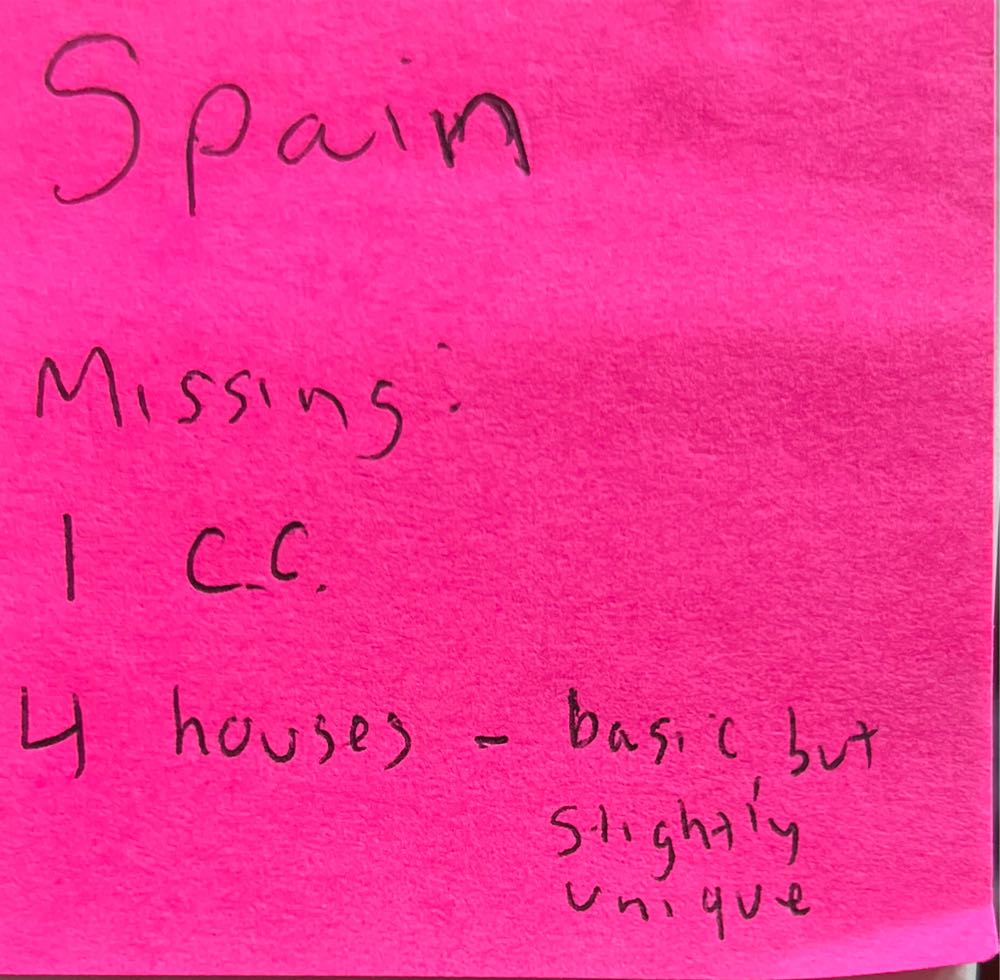 Spain
Missing:
1 C.C.
4 houses - basic but
slightly
unique